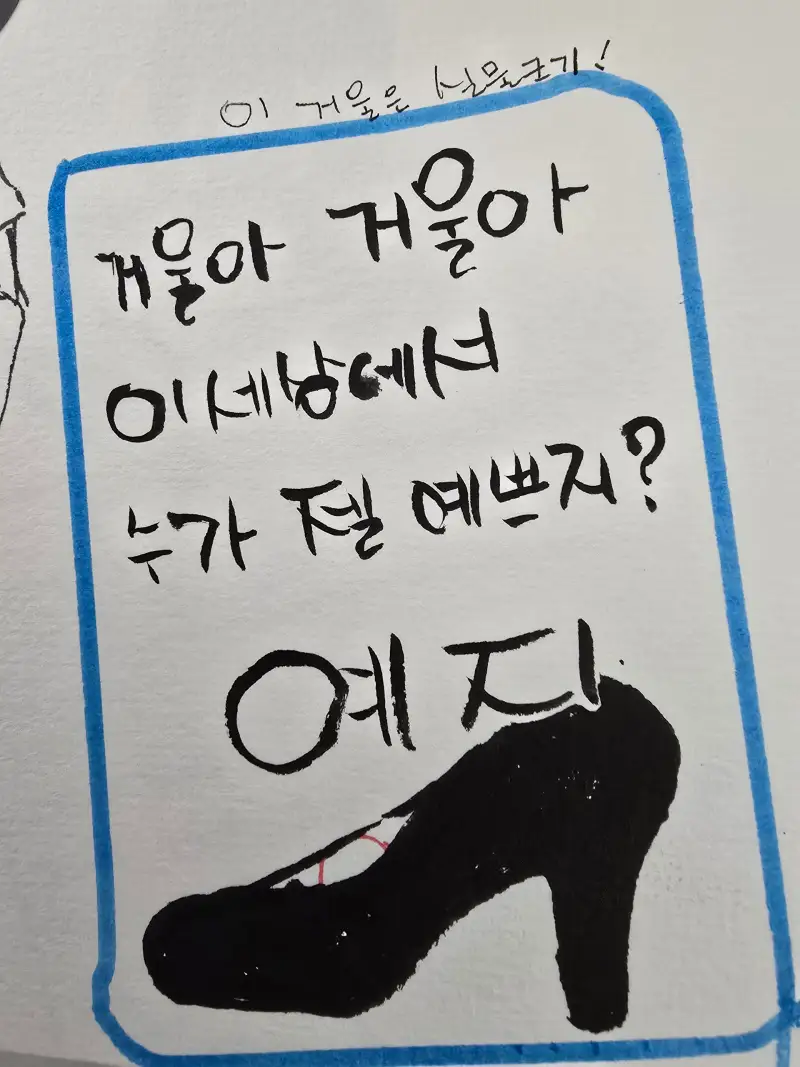 이 거울은 실물크기!
거울아 거울아
이세상에서
누가 젤 예쁘지?
예지